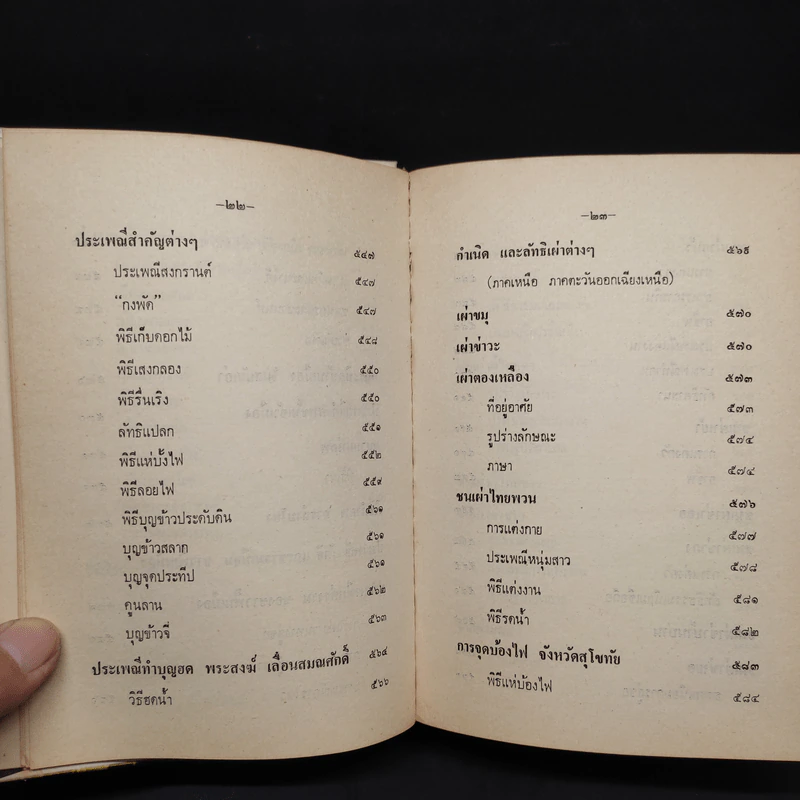 —๒๒—
ประเพณีสำคัญต่างๆ ๕๔๗
ประเพณีสงกรานต์ ๕๔๗
“กงพัด” ๕๔๗
พิธีเก็บดอกไม้ ๕๔๘
พิธีเสงกลอง ๕๕๐
พิธีรื่นเริง ๕๕๐
ลัทธิแปลก ๕๕๑
พิธีแห่บั้งไฟ ๕๕๒
พิธีลอยไฟ ๕๕๙
พิธีบุญข้าวประดับดิน ๕๖๑
บุญข้าวสลาก ๕๖๑
บุญจุดประทีป ๕๖๑
คูนลาน ๕๖๒
บุญข้าวจี่ ๕๖๓
ประเพณีทำบุญฮด พระสงฆ์ เลื่อนสมณศักดิ์ ๕๖๔
วิธีฮดน้ำ ๕๖๖
—๒๓—
กำเนิด และลัทธิเผ่าต่างๆ ๕๖๙
(ภาคเหนือ ภาคตะวันออกเฉียงเหนือ)
เผ่าขมุ ๕๗๐
เผ่าข่าวะ ๕๗๐
เผ่าตองเหลือง ๕๗๓
ที่อยู่อาศัย ๕๗๓
รูปร่างลักษณะ ๕๗๔
ภาษา ๕๗๔
ชนเผ่าไทยพวน ๕๗๖
การแต่งกาย ๕๗๗
ประเพณีหนุ่มสาว ๕๗๘
พิธีแต่งงาน ๕๘๑
พิธีรดน้ำ ๕๘๒
การจุดบ้องไฟ จังหวัดสุโขทัย ๕๘๓
พิธีแห่บ้องไฟ ๕๘๔